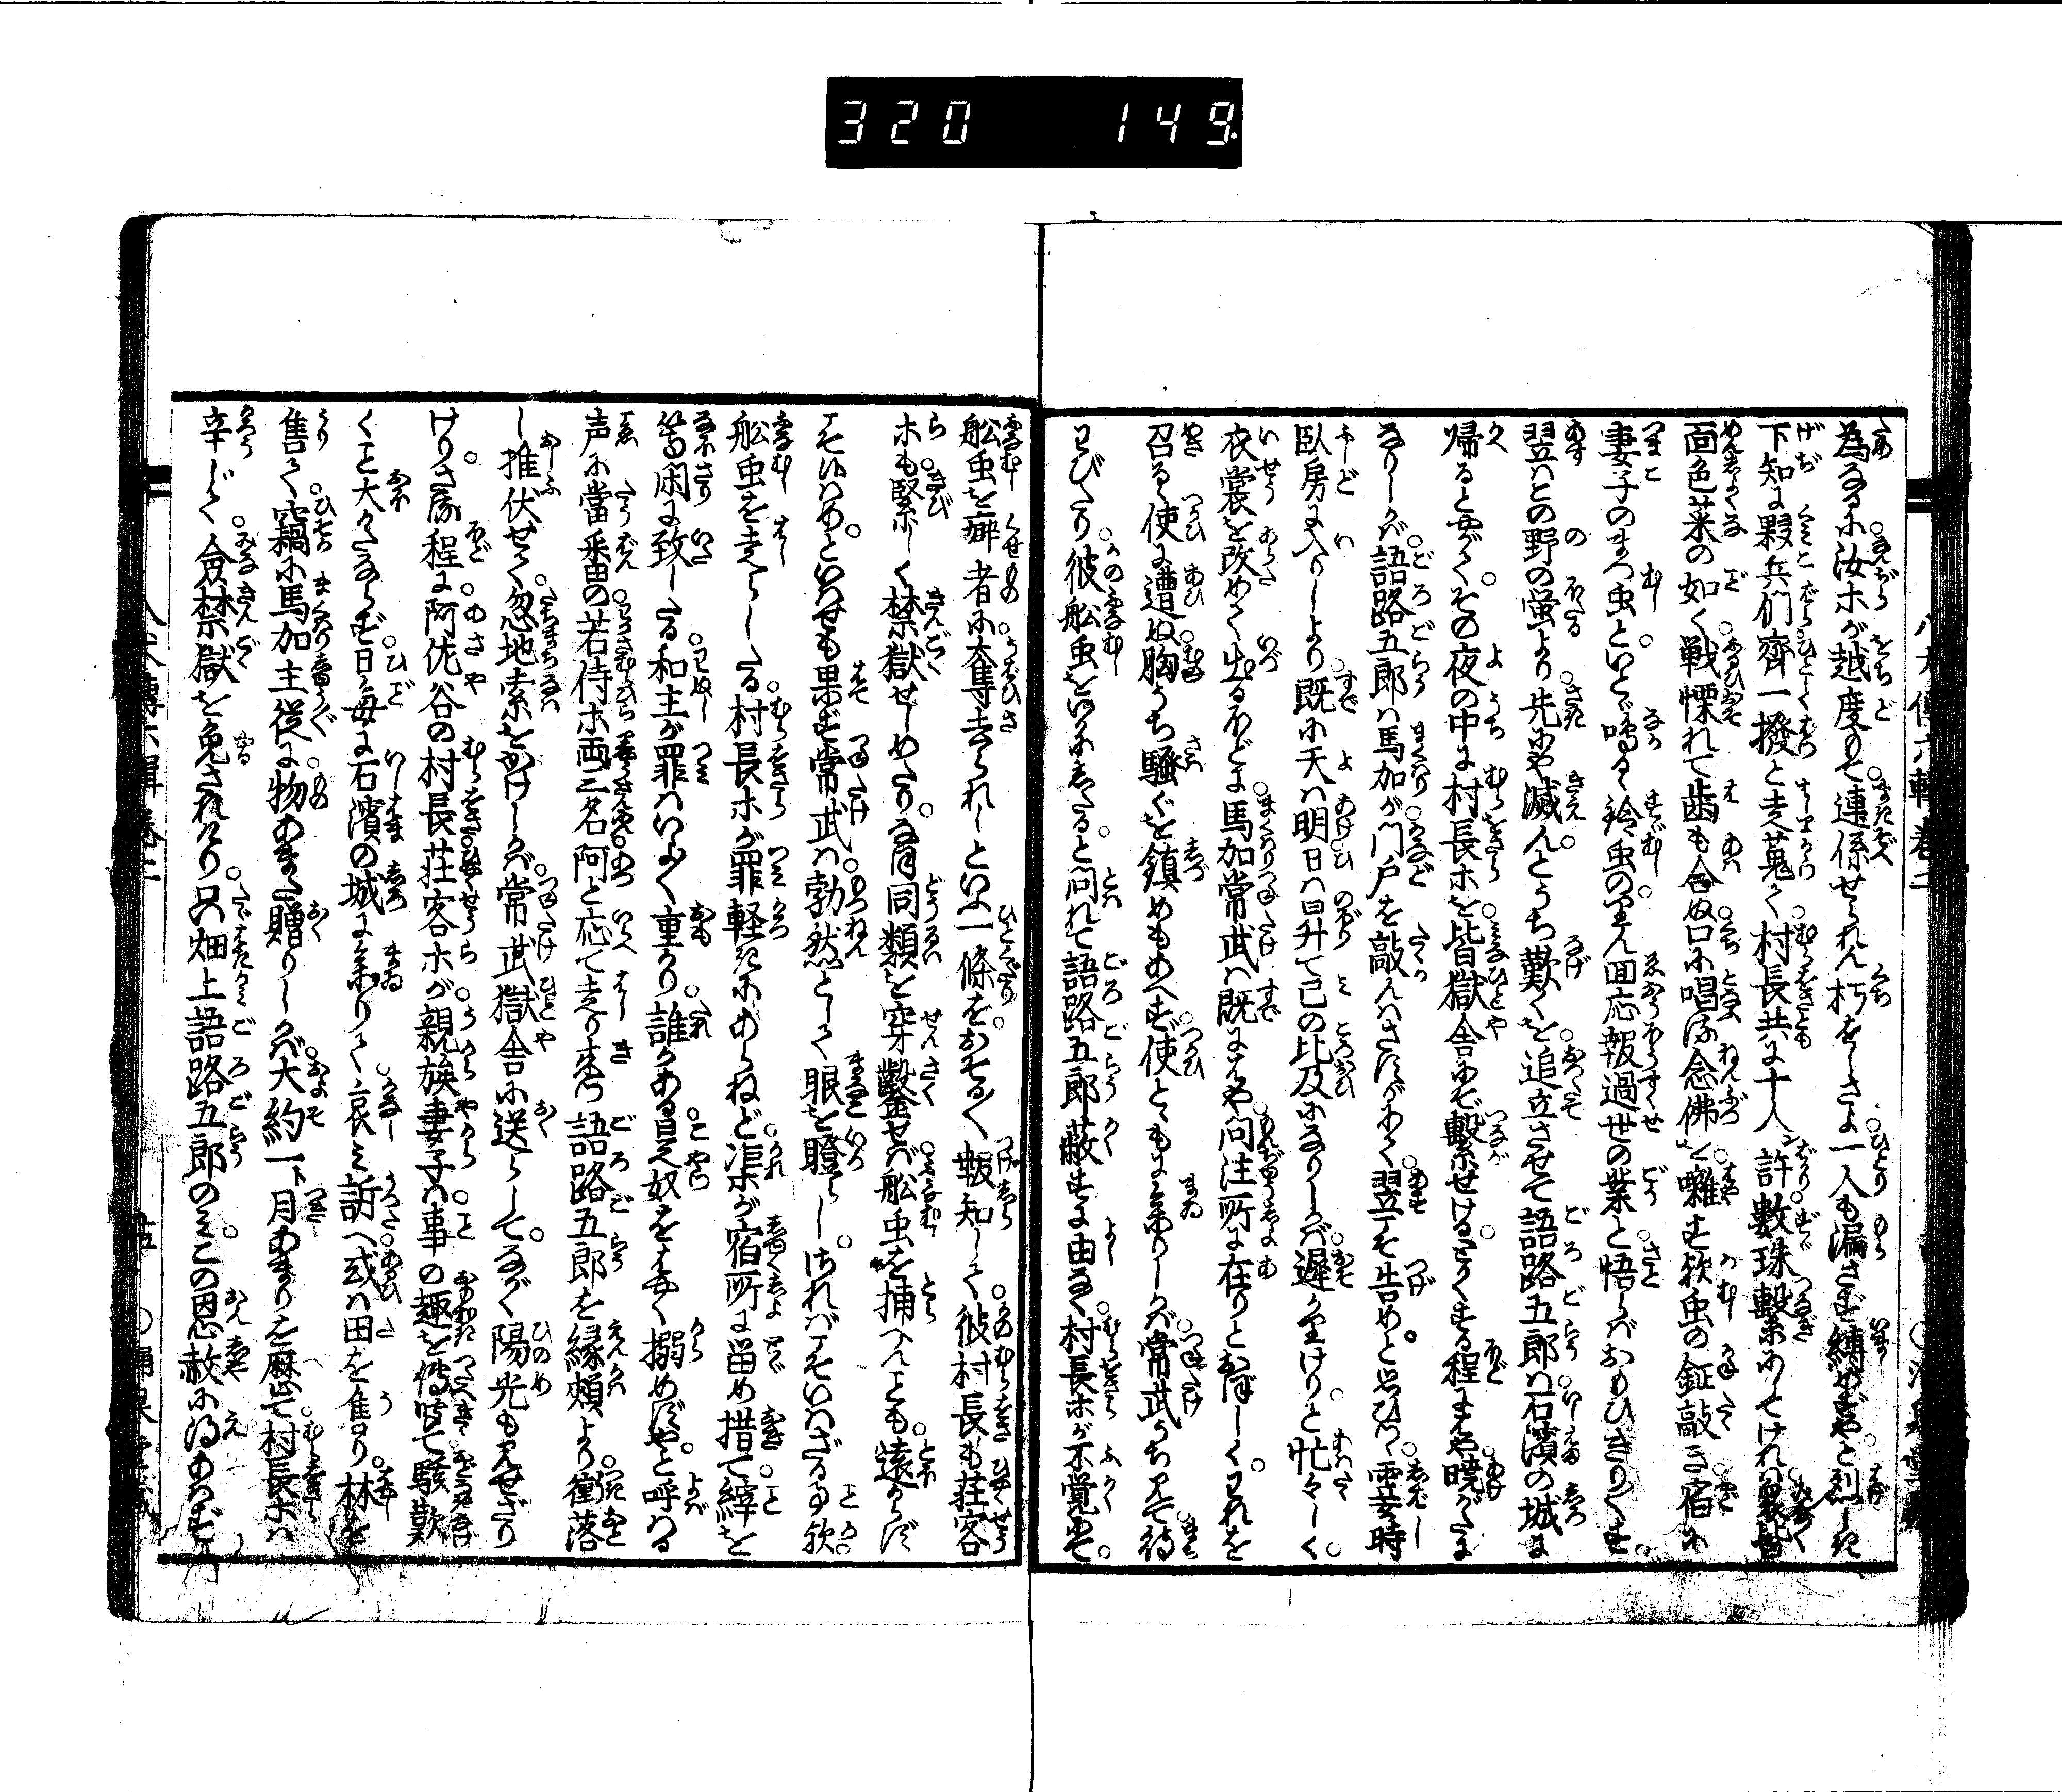 320 149.
為なるに汝等が越度もて連係せられん朽をしさよ一人も漏さず縛めずやと烈しき
下知に夥兵們齊一撥と走蒐て村長共に十人許數珠繋にしてければ衆皆
面色菜の如く戦慄れて歯も合ぬ口に唱る念佛を囃す欤虫の鉦敲き宿に
妻子のまつ虫といとゞ鳴く鈴虫の
翌はとの野の蛍より先にや滅んとうち歎くを追立させて語路五郎は石濱の城に
帰ると やがてその夜の中に村長等を皆獄舎にぞ繋せける とくする程にはや暁がたに
なりしかば語路五郎は馬加が門戸を敲んはさすがにて翌こそ告めと思ひつゝ霎時
臥房に入りしより既に天は明日は昇て己の比及になりしかば遅かりけりと忙々しく
衣裳を改めて出るほどに馬加常武は既にはや問注所に在りと聞しくわれを
召るゝ使に遭ぬ胸うち騒ぐを鎮めもあへず使とゝもに参りしかば常武うち見て待
わびたり彼舩虫をいかにしたると問れて語路五郎蔽すに由なく村長等が不覚にて
舩虫を癖者に奪去られしといふ一條をおそる〳〵報知して彼村長も荘客
等も緊しく禁獄せしめたりなほ同類を穿鑿せば舩虫を捕へんことも遠からじ
でこそ候はめといはせも果ず常武は勃然として眼を瞪らしさればこそいはざる事欤
舩虫を走らしたる村長等が罪軽きにあらねど渠等が宿所に留め措て縡を
等閑に致したる和主が罪はいよゝ重かり誰かある是奴をはやく搦めずやと呼はる
声に當番の若侍等両三名阿と応て走り来つ語路五郎を縁頬より衝落
し推伏せて忽地索をかけしかば常武獄舎に送らしてながく陽光も見せざり
けりさる程に阿佐谷の村長荘客等が親族妻子は事の趣を傳聞て駭歎
くこと大かたならず日毎に石濱の城に参りて哀み訴へ或は田を售り林を
售て竊に馬加主従に物あまた贈りしかば大約一ト月あまりを歴て村長等は
辛じて僉禁獄を免されけり只畑上語路五郎のみこの恩赦に得あはず